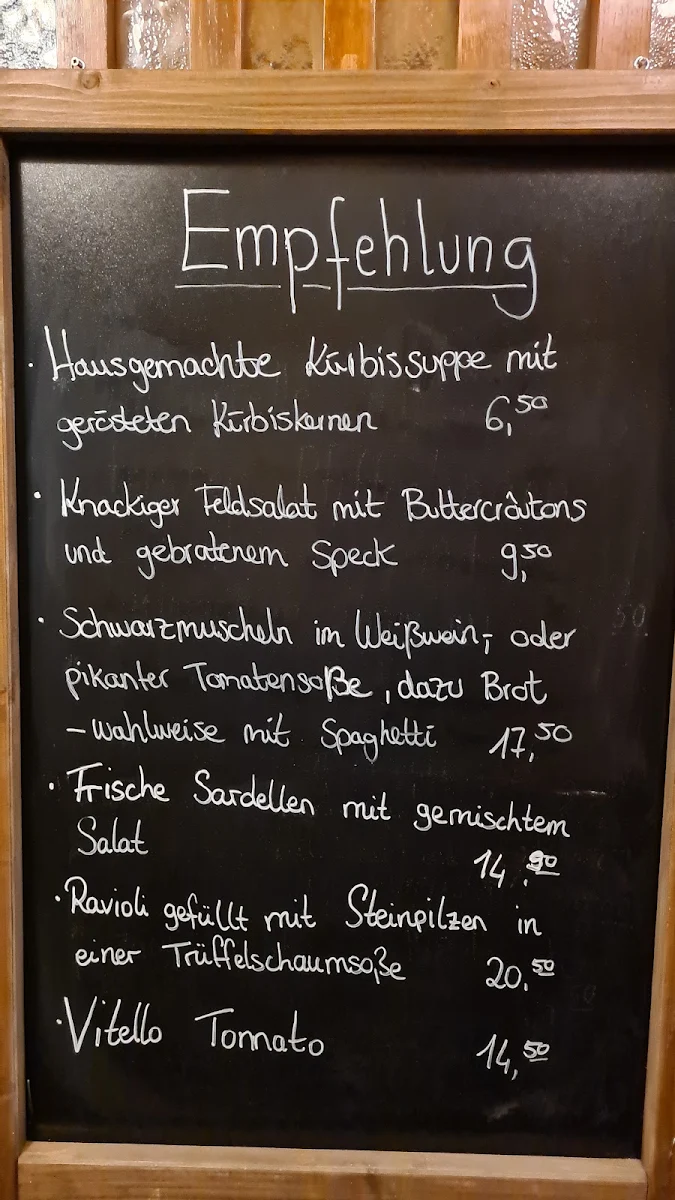 Empfehlung
· Hausgemachte Kürbissuppe mit
gerösteten Kürbiskernen 6,50
· Knackiger Feldsalat mit Buttercroûtons
und gebratenem Speck 9,50
· Schwarzmuscheln im Weißwein,- oder
pikanter Tomatensoße, dazu Brot
- wahlweise mit Spaghetti 17,50
· Frische Sardellen mit gemischtem
Salat
14,90
· Ravioli gefüllt mit Steinpilzen in
einer Trüffelschaumsoße 20,50
· Vitello Tonnato 14,50